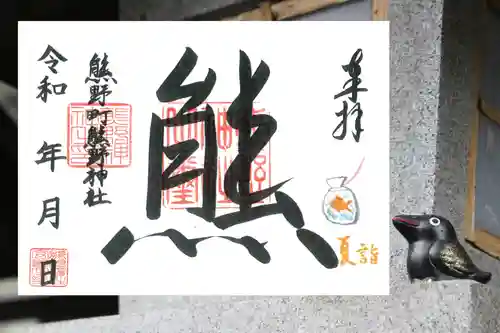 奉拝
夏詣
熊
熊野町熊野神社
令和 年 月 日